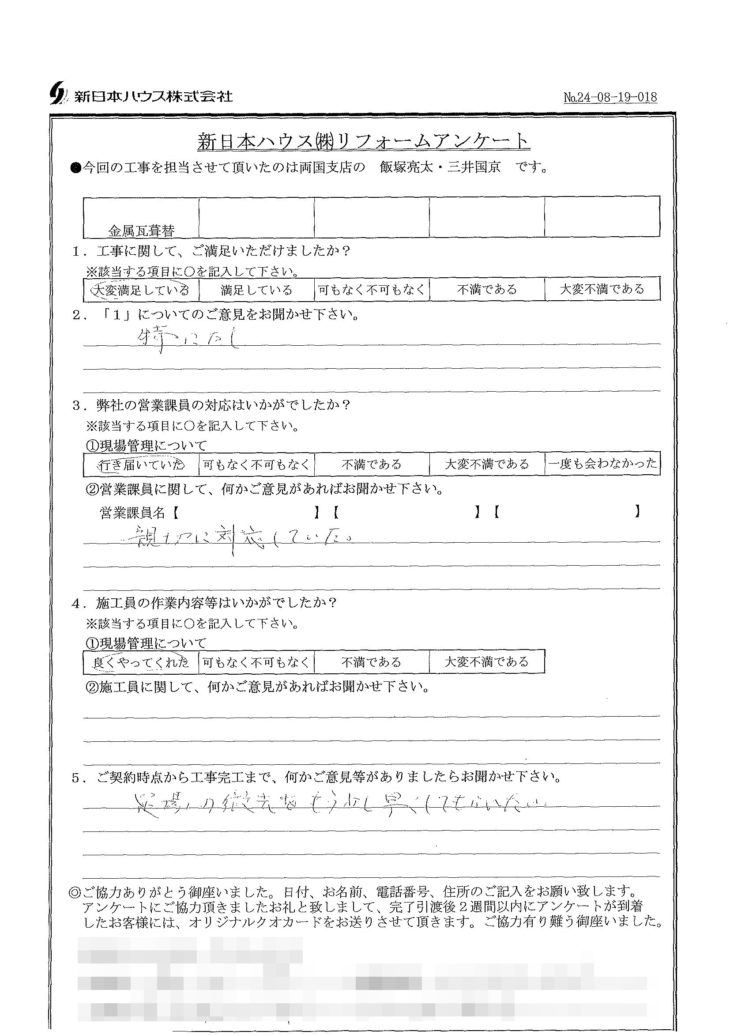 新日本ハウス株式会社
№24-08-19-018
新日本ハウス㈱リフォームアンケート
●今回の工事を担当させて頂いたのは両国支店の 飯塚亮太・三井国京 です。
金属瓦葺替
1．工事に関して、ご満足いただけましたか？
※該当する項目に○を記入して下さい。
大変満足している 満足している 可もなく不可もなく 不満である 大変不満である
2．「1」についてのご意見をお聞かせ下さい。
特になし
3．弊社の営業課員の対応はいかがでしたか？
※該当する項目に○を記入して下さい。
①現場管理について
行き届いていた 可もなく不可もなく 不満である 大変不満である 一度も会わなかった
②営業課員に関して、何かご意見があればお聞かせ下さい。
営業課員名【 】【 】【 】
親切に対応していた。
4．施工員の作業内容等はいかがでしたか？
※該当する項目に○を記入して下さい。
①現場管理について
良くやってくれた 可もなく不可もなく 不満である 大変不満である
②施工員に関して、何かご意見があればお聞かせ下さい。
5．ご契約時点から工事完工まで、何かご意見等がありましたらお聞かせ下さい。
足場の撤去をもう少し早くしてもらいたい
◎ご協力ありがとう御座いました。日付、お名前、電話番号、住所のご記入をお願い致します。
アンケートにご協力頂きましたお礼と致しまして、完了引渡後２週間以内にアンケートが到着
したお客様には、オリジナルクオカードをお送りさせて頂きます。ご協力有り難う御座いました。